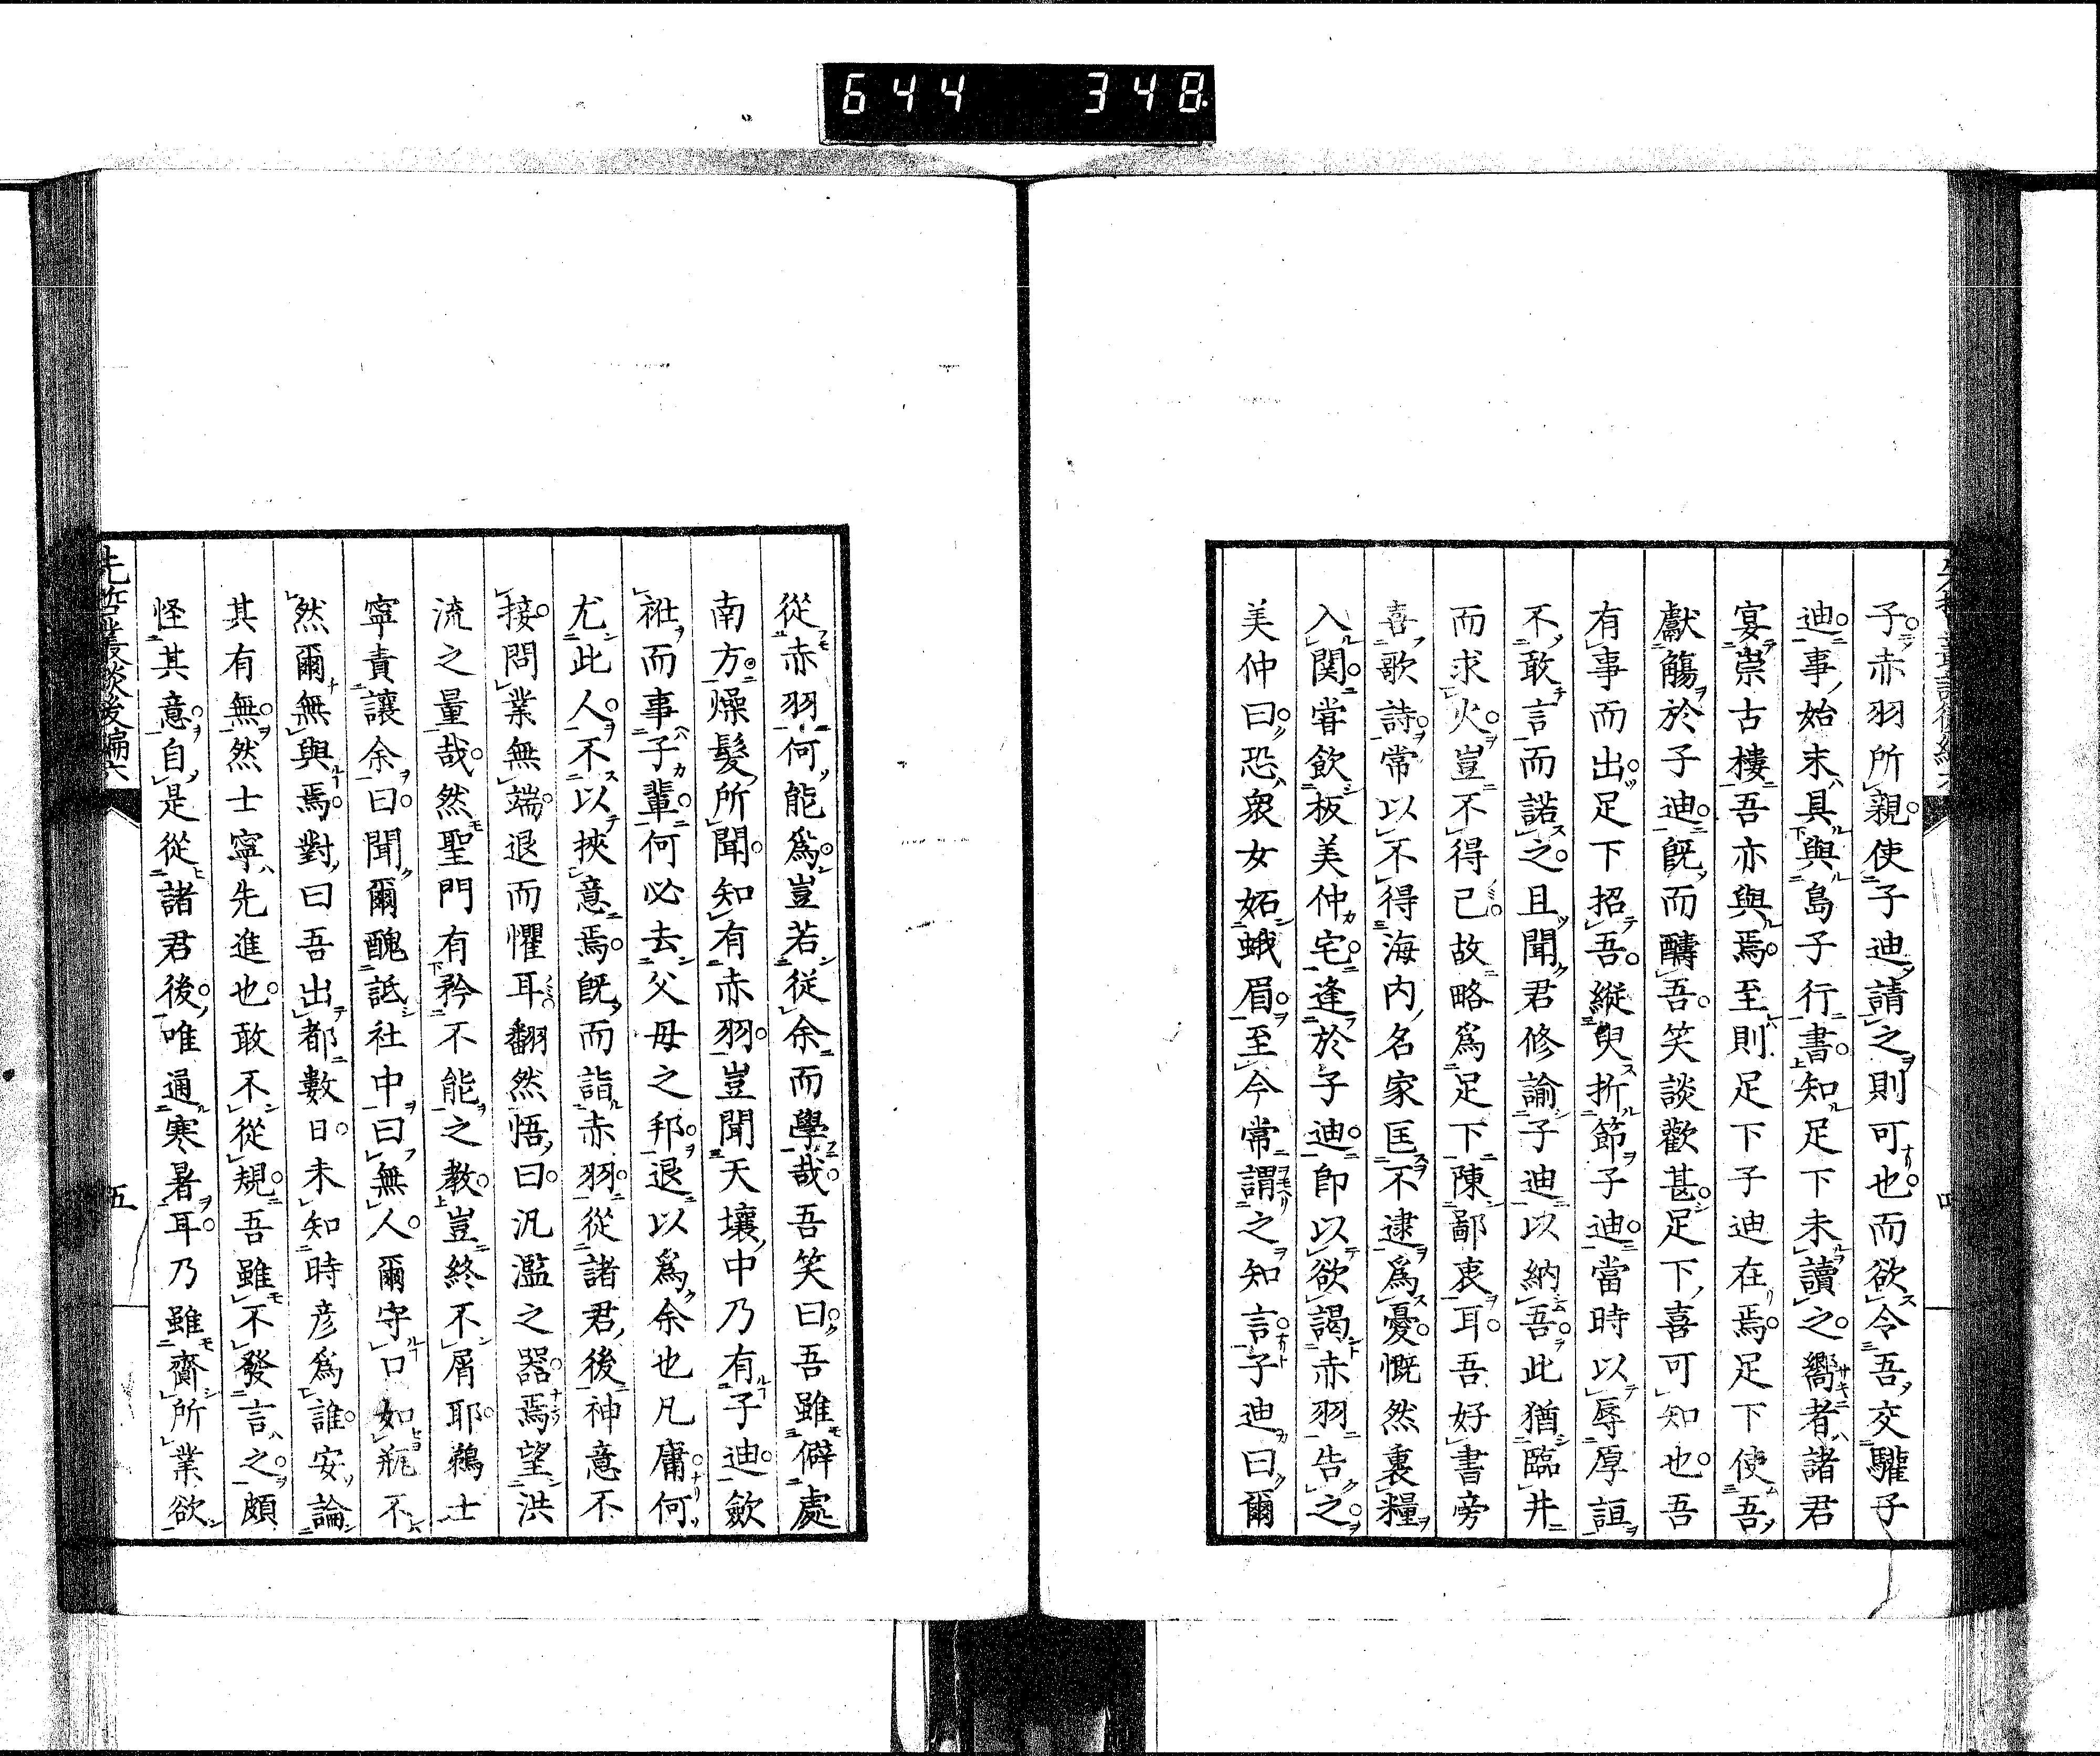 644 348
子赤羽所親使子迪請之則可也而欲令吾交驩子
迪事始末具與島子行書知足下未讀之嚮者諸君
宴崇古樓吾亦與焉至則足下子迪在焉足下使吾
獻觴於子迪既而醻吾笑談歡甚足下喜可知也吾
有事而出足下招吾縱臾折節子迪當時以辱厚誼
不敢言而諾之且聞君修諭子迪以納吾此猶臨井
而求火豈不得已故略爲足下陳鄙衷耳吾好書旁
喜歌詩常以不得海内名家匡不逮爲憂慨然裹糧
入関嘗飲板美仲宅逢於子迪即以欲謁赤羽告之
美仲曰恐衆女妬蛾眉至今常謂之知言子迪曰爾
從赤羽何能爲豈若從余而學哉吾笑曰吾雖僻處
南方燥髮所聞知有赤羽豈聞天壤中乃有子迪歛
袵而事子輩何必去父母之邦退以爲余也凡庸何
尤此人不以挾意焉既而詣赤羽從諸君後神意不
接問業無端退而懼耳翻然悟曰汎濫之器焉望洪
流之量哉然聖門有矜不能之教豈終不屑耶鵜士
寧責讓余曰聞爾醜詆社中曰無人爾守口如瓶不
然爾無與焉對曰吾出都數日未知時彦爲誰安論
其有無然士寧先進也敢不從規吾雖不發言之頗
怪其意自是從諸君後唯通寒暑耳乃雖齎所業欲
先哲叢談後編六
五